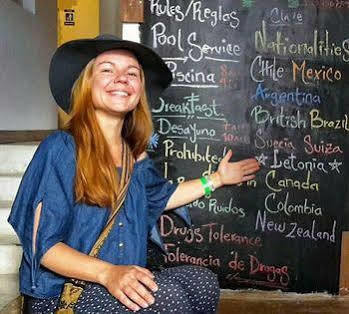 Rules/Reglas
Pool Service
Piscina
Breakfast
Desayuno
Prohibited
Ruidos
Drugs Tolerance
Tolerancia de Drogas
Clave
Nationalities
Chile Mexico
Argentina
British Brazil
Suecia Suiza
Letonia
Canada
Colombia
New Zealand